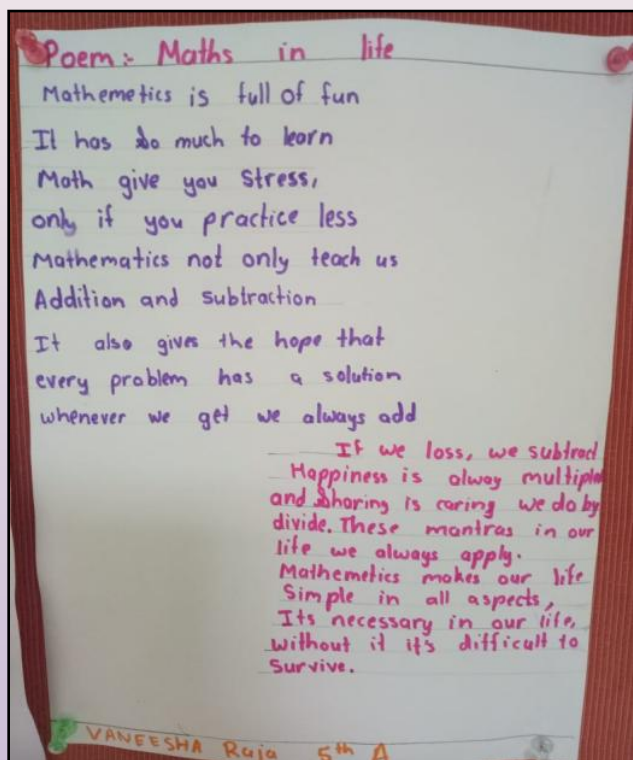 Poem:- Maths in life
Mathemetics is full of fun
It has so much to learn
Math give you stress,
only if you practice less
Mathematics not only teach us
Addition and subtraction
It also gives the hope that
every problem has a solution
whenever we get we always add
If we loss, we subtract
Happiness is alway multiple
and sharing is caring we do by
divide. These mantras in our
life we always apply.
Mathemetics makes our life
Simple in all aspects,
Its necessary in our life,
without it it's difficult to
Survive.
VANEESHA Raja 5th A